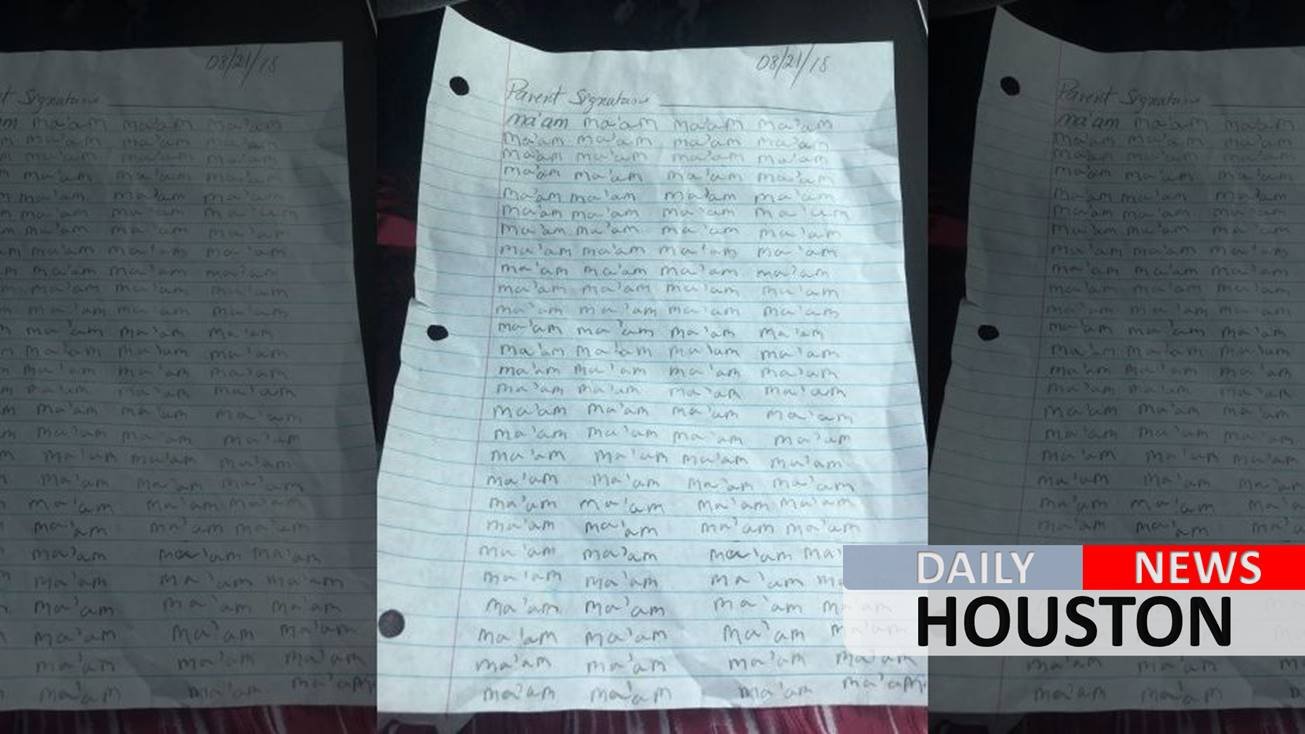 08/21/18
Parent Signature
ma'am ma'am ma'am ma'am
ma'am ma'am ma'am ma'am
ma'am ma'am ma'am ma'am
ma'am ma'am ma'am ma'am
ma'am ma'am ma'am ma'am
ma'am ma'am ma'am ma'am
ma'am ma'am ma'am ma'am
ma'am ma'am ma'am ma'am
ma'am ma'am ma'am ma'am
ma'am ma'am ma'am ma'am
ma'am ma'am ma'am ma'am
ma'am ma'am ma'am ma'am
ma'am ma'am ma'am ma'am
ma'am ma'am ma'am ma'am
ma'am ma'am ma'am ma'am
ma'am ma'am ma'am ma'am
ma'am ma'am ma'am ma'am
ma'am ma'am ma'am ma'am
ma'am ma'am ma'am ma'am
ma'am ma'am ma'am ma'am
ma'am ma'am ma'am ma'am
ma'am ma'am ma'am
ma'am ma'am ma'am
ma'am ma'am ma'am
ma'am ma'am ma'am
ma'am ma'am ma'am ma'am
ma'am ma'am ma'am ma'am
DAILY NEWS
HOUSTON